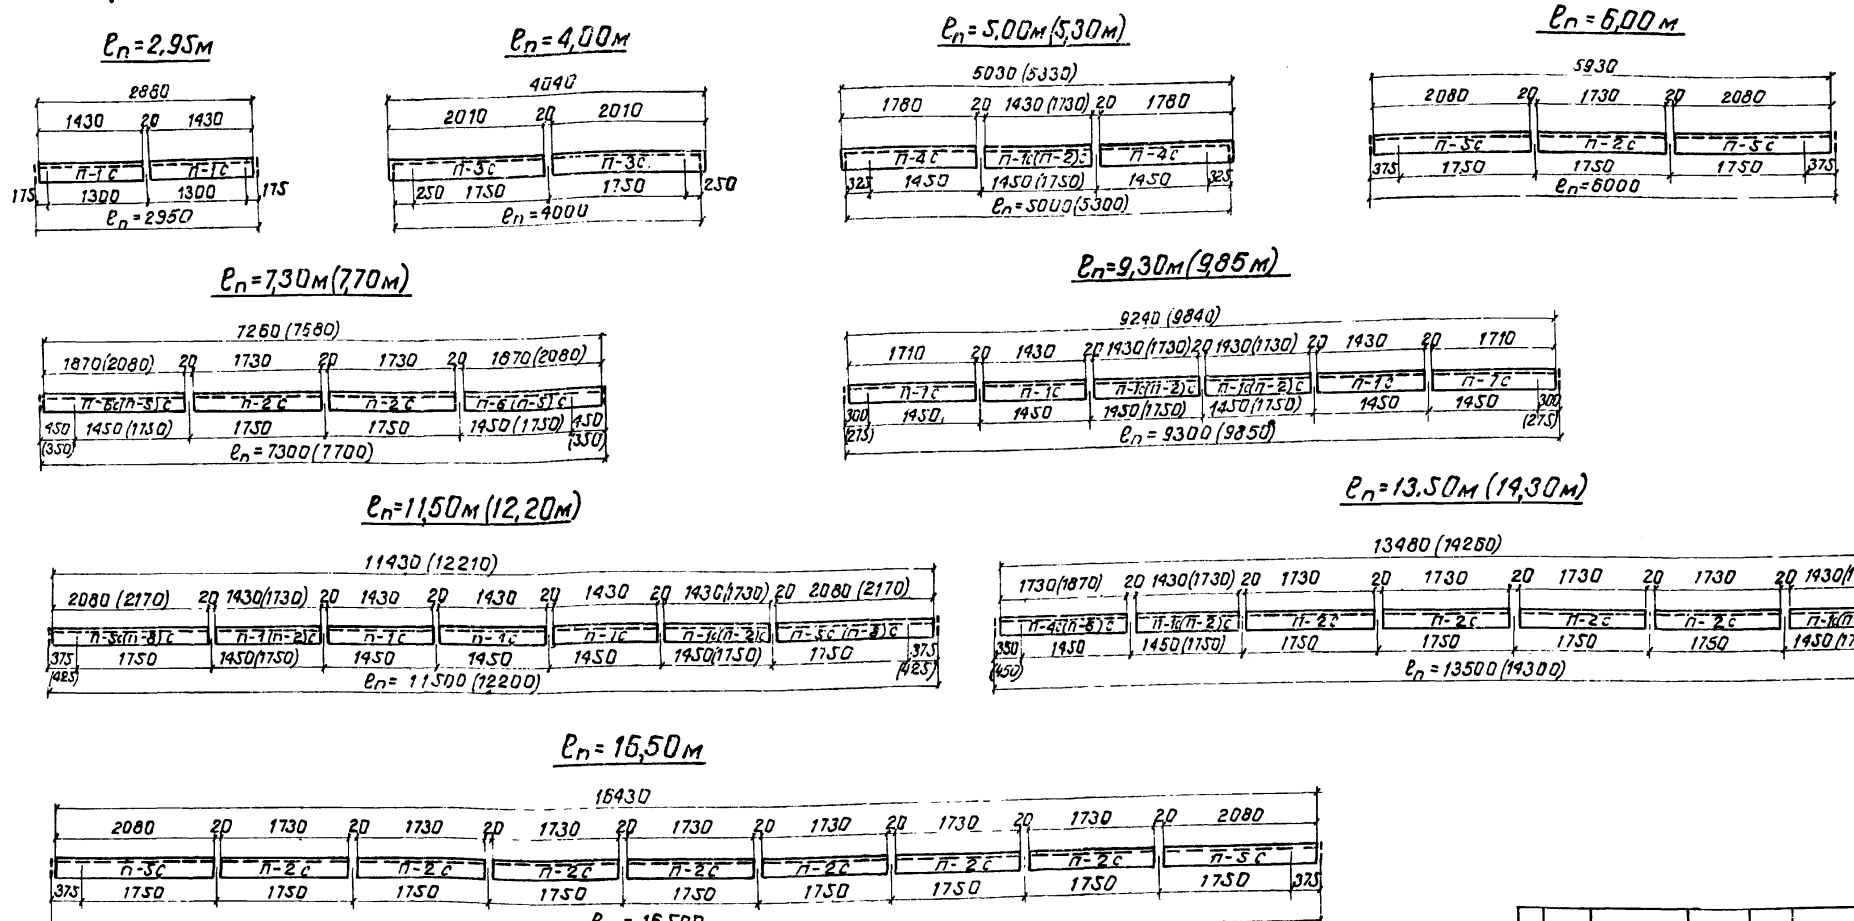 ℓп=2,95м
2880
1430 20 1430
п-1с п-1с
175 1300 1300 175
ℓп=2950
ℓп=4,00м
4040
2010 20 2010
п-3с п-3с.
250 1750 1750 250
ℓп=4000
ℓп=5,00м(5,30м)
5030 (5330)
1780 20 1430 (1730) 20 1780
п-4с п-1с(п-2)с п-4с
325 1450 1450 (1750) 1450 325
ℓп=5000(5300)
ℓп=6,00м
5930
2080 20 1730 20 2080
п-5с п-2с п-5с
375 1750 1750 1750 375
ℓп=6000
ℓп=7,30м(7,70м)
7260 (7680)
1870(2080) 20 1730 20 1730 20 1870(2080)
п-6с(п-5)с п-2с п-2с п-6(п-5)с
450 1450 (1750) 1750 1750 1450 (1750) 450
(350) (350)
ℓп=7300(7700)
ℓп=9,30м(9,85м)
9240 (9840)
1710 20 1430 20 1430(1730) 20 1430(1730) 20 1430 20 1710
п-7с п-1с п-1с(п-2)с п-1с(п-2)с п-1с п-7с
300 1450 1450 1450(1750) 1450(1750) 1450 1450 300
(275) (275)
ℓп=9300 (9850)
ℓп=11,50м(12,20м)
11430 (12210)
2080 (2170) 20 1430(1730) 20 1430 20 1430 20 1430 20 1430(1730) 20 2080 (2170)
п-5с(п-8)с п-1(п-2)с п-1с п-1с п-1с п-1с(п-2)с п-5с(п-8)с
375 1750 1450(1750) 1450 1450 1450 1450(1750) 1750 375
(425) (425)
ℓп= 11500 (12200)
ℓп=13.50м (14,30м)
13480 (14260)
1730(1870) 20 1430(1730) 20 1730 20 1730 20 1730 20 1730 20 1430(1
п-4с(п-6)с п-1с(п-2)с п-2с п-2с п-2с п-2с п-1с(п
350 1450 1450(1750) 1750 1750 1750 1750 1450(17
(450)
ℓп=13500(14300)
ℓп=16,50м
16430
2080 20 1730 20 1730 20 1730 20 1730 20 1730 20 1730 20 1730 20 2080
п-5с п-2с п-2с п-2с п-2с п-2с п-2с п-2с п-5с
375 1750 1750 1750 1750 1750 1750 1750 1750 1750 375